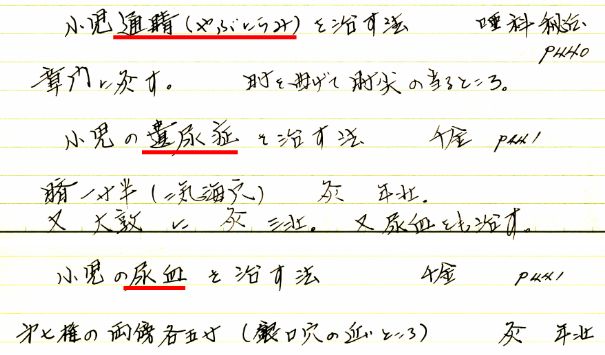 小児通睛(やぶにらみ)を治す法 唖科秘伝
P440
章門に灸す。 肘を曲げて肘尖の当るところ。
小児の遺尿症を治す法 千金 P441
臍一寸半(=気海穴) 灸 年壮.
又 大敦 に 灸三壮。 又尿血をも治す。
小児の尿血を治す法 千金 P441
第七椎の両傍各五寸 (穴の近いところ) 灸 年壮